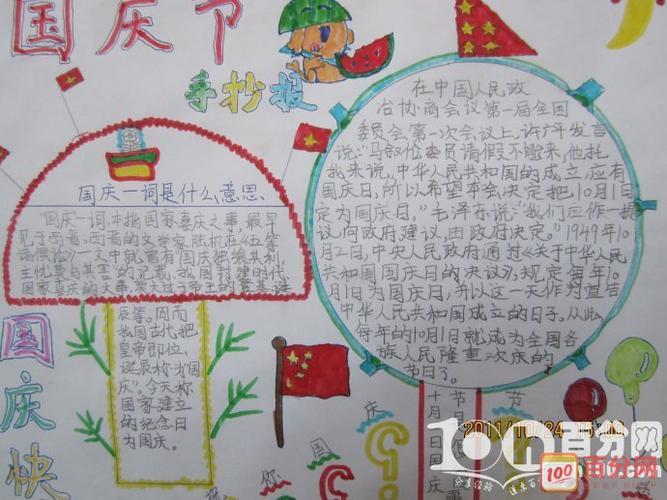 国庆节
手抄报
国庆一词是什么意思、
国庆一词,本指国家喜庆之事,最早
见于西晋。西晋的文学家陆机在《五等
诸侯论》一文中就曾有国庆
主忧莫与其害”的记载、我国封建时代
国家喜庆的大事,莫大过于帝王的登基诞
辰等。因而
我国古代把
皇帝即位、
诞辰称为“国
庆”。今天称
国家建立
的纪念日
为国庆。
在中国人民政
治协商会议第一届全国
委员会第一次会议上,许广平发言
说:“马叙伦委员请假不能来,他托
我来说,中华人民共和国的成立,应有
国庆日,所以希望本会决定把10月1日
定为国庆日。”毛泽东说:“我们应作一提
议,向政府建议,由政府决定。”1949年10
月2日,中央人民政府通过《关于中华人
民共和国国庆日的决议》,规定每年10
月1日为国庆日,并以这一天作为宣告
中华人民共和国成立的日子。从此
每年的10月1日就成为全国各
族人民隆重欢庆的
节日了。
国
庆
快
你
国
庆
节
十
月
日
国
庆
节
2011/10/24
百分网
100
百分网